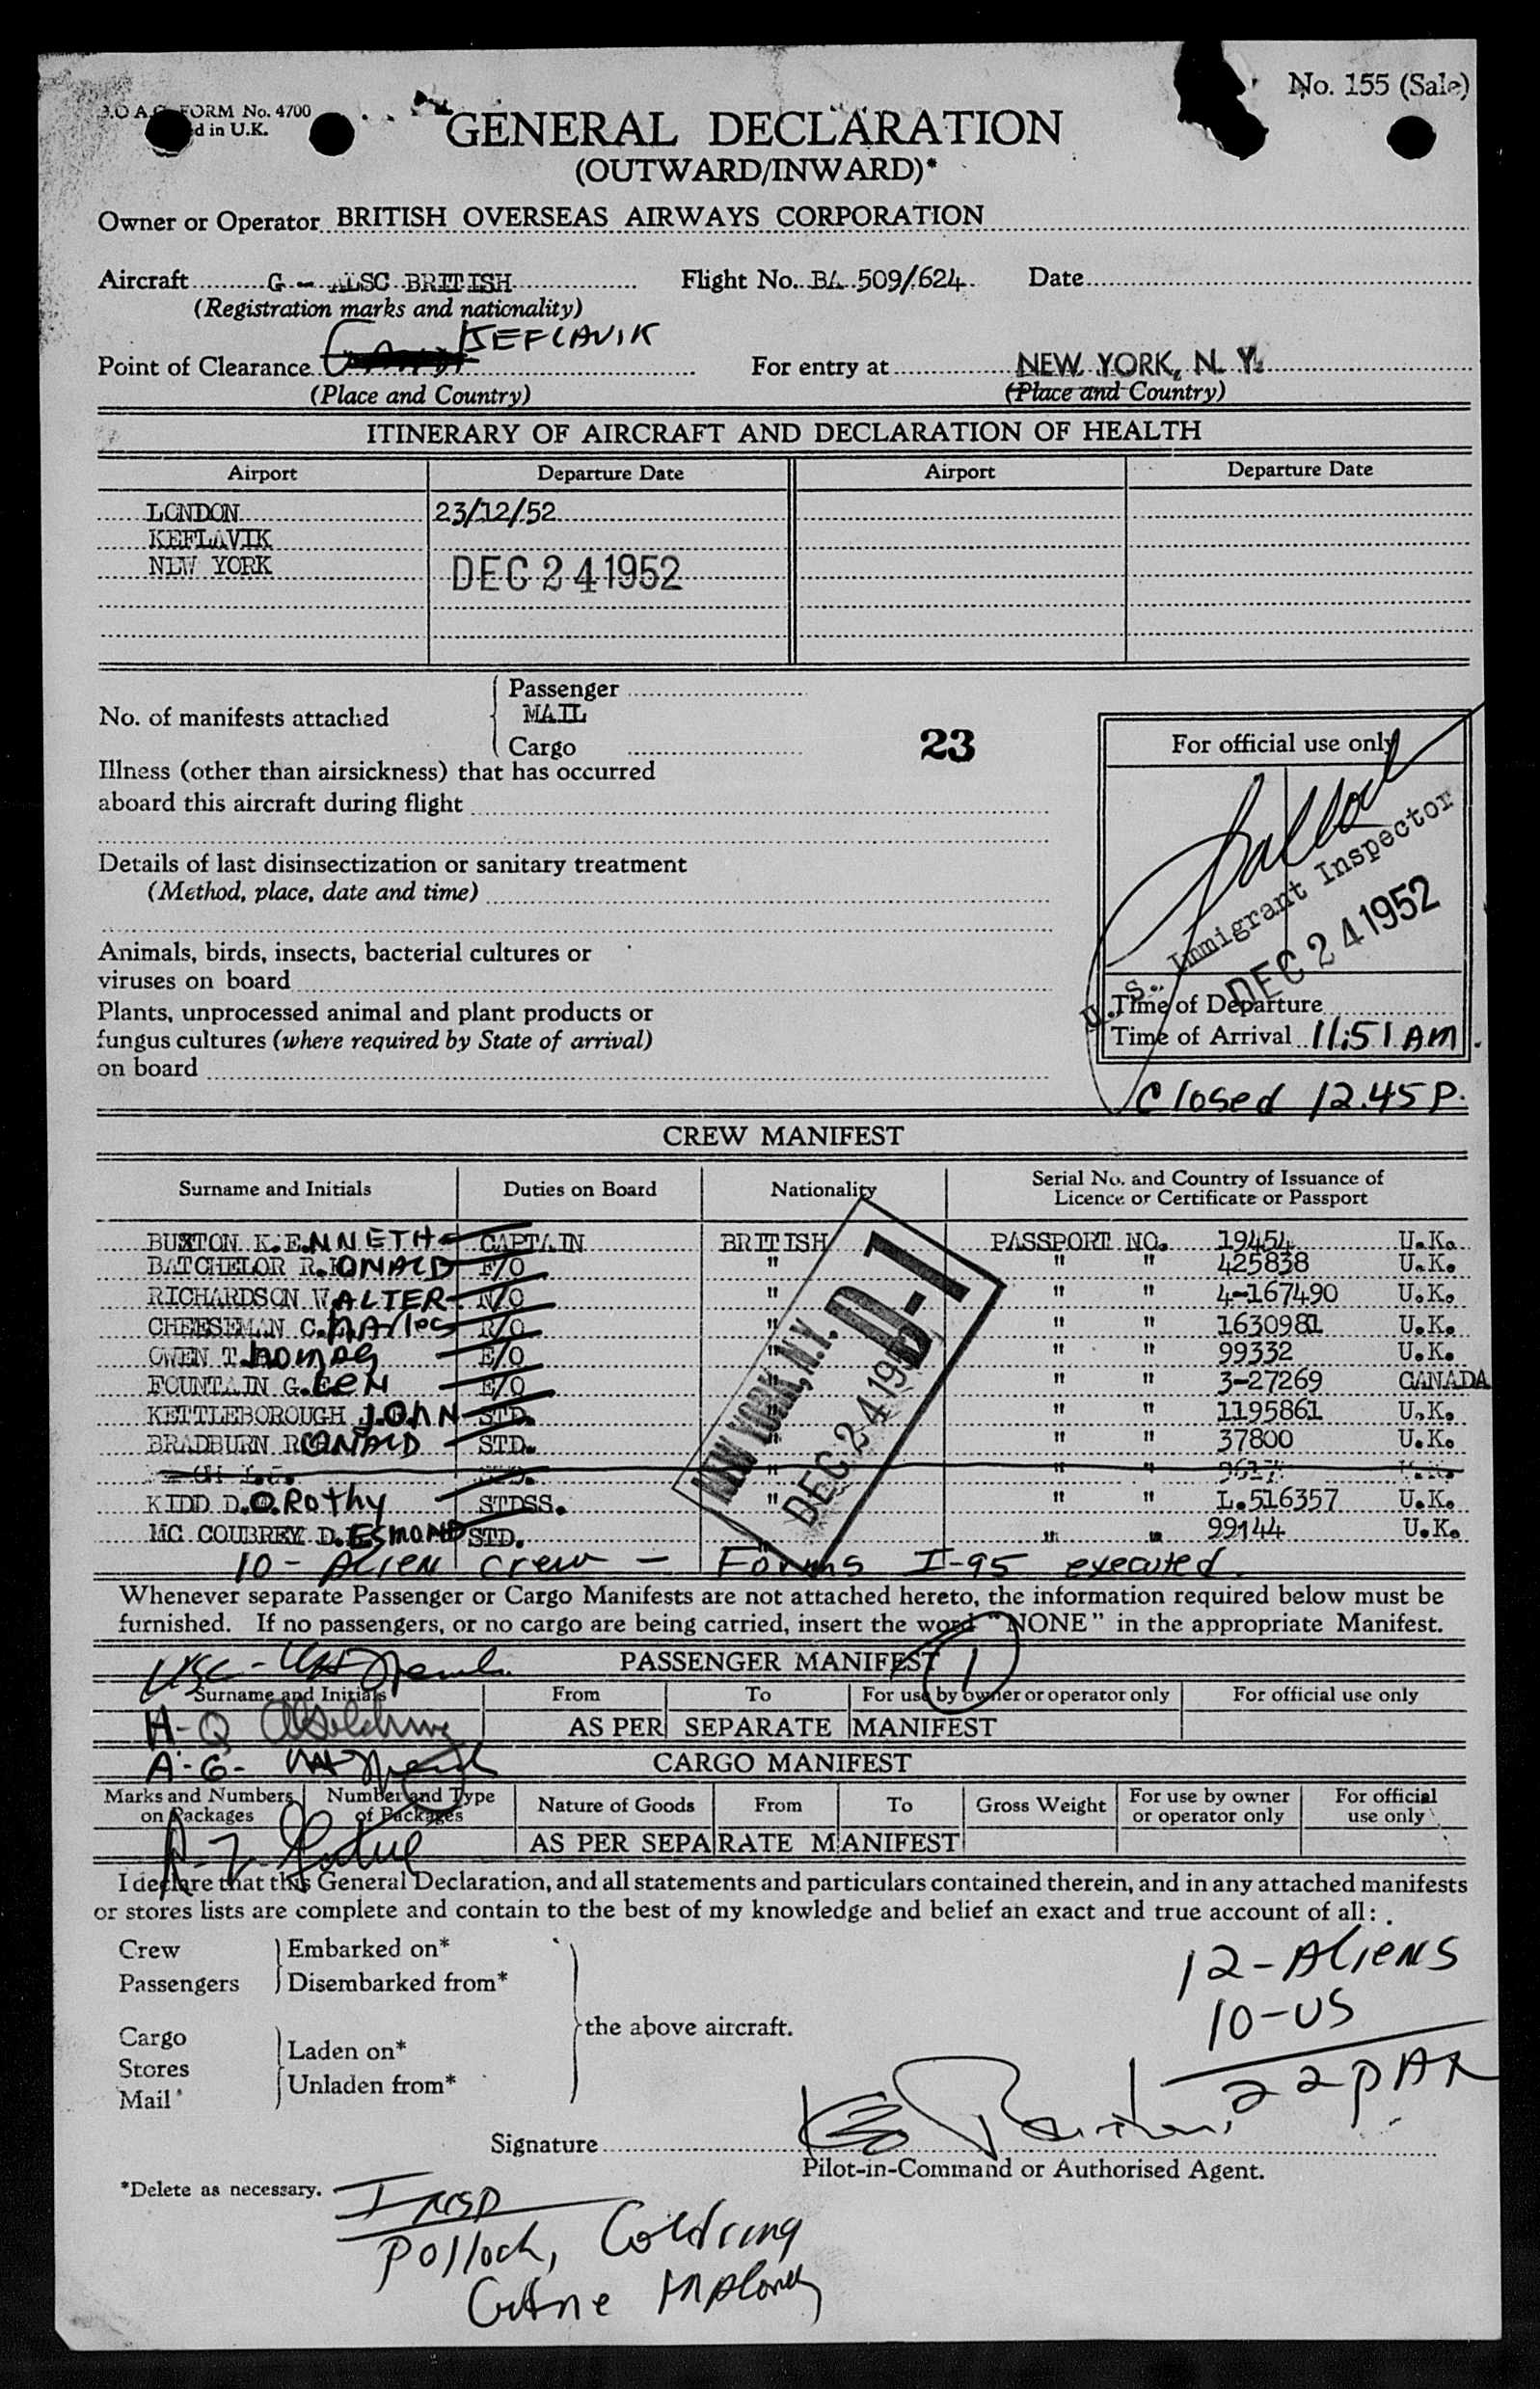 No. 155 (Sale)
B.O.A.C. FORM No. 4700
d in U.K.
GENERAL DECLARATION
(OUTWARD/INWARD)*
Owner or Operator BRITISH OVERSEAS AIRWAYS CORPORATION
Aircraft G - ALSC BRITISH Flight No. BA 509/624 Date
(Registration marks and nationality)
KEFLAVIK
Point of Clearance For entry at NEW YORK, N. Y.
(Place and Country) (Place and Country)
ITINERARY OF AIRCRAFT AND DECLARATION OF HEALTH
Airport Departure Date Airport Departure Date
LONDON 23/12/52
KEFLAVIK
NEW YORK DEC 24 1952
Passenger
No. of manifests attached MAIL
Cargo 23
For official use only
Illness (other than airsickness) that has occurred
aboard this aircraft during flight
Details of last disinsectization or sanitary treatment
(Method, place, date and time)
U.S. Immigrant Inspector
DEC 24 1952
Animals, birds, insects, bacterial cultures or
viruses on board
Plants, unprocessed animal and plant products or
fungus cultures (where required by State of arrival)
on board
Time of Departure
Time of Arrival 11:51 AM.
Closed 12.45 P.
CREW MANIFEST
Surname and Initials Duties on Board Nationality Serial No. and Country of Issuance of Licence or Certificate or Passport
BUXTON K.ENNETH CAPTAIN BRITISH PASSPORT NO. 19454 U.K.
BATCHELOR R.ONALD F/O " " " 425838 U.K.
RICHARDSON WALTER N/O " " " 4-167490 U.K.
CHEESEMAN C.hArles R/O " " " 1630981 U.K.
OWEN T.homas E/O " " " 99332 U.K.
FOUNTAIN G.LEN E/O " " " 3-27269 CANADA
KETTLEBOROUGH J.OhN STD. " " " 1195861 U.K.
BRADBURN RONALD STD. " " " 37800 U.K.
KIDD D.ORothy STDSS. " " " L.516357 U.K.
MC COUBREY D.ESMOND STD. " " " 99144 U.K.
NEW YORK, N.Y. D-1
DEC 24 1952
10 - Alien crew - Forms I-95 executed.
Whenever separate Passenger or Cargo Manifests are not attached hereto, the information required below must be
furnished. If no passengers, or no cargo are being carried, insert the word "NONE" in the appropriate Manifest.
PASSENGER MANIFEST 1
USC -
Surname and Initials From To For use by owner or operator only For official use only
H-Q
AS PER SEPARATE MANIFEST
A-G-
CARGO MANIFEST
Marks and Numbers on Packages Number and Type of Packages Nature of Goods From To Gross Weight For use by owner or operator only For official use only
R-Z-
AS PER SEPARATE MANIFEST
I declare that this General Declaration, and all statements and particulars contained therein, and in any attached manifests
or stores lists are complete and contain to the best of my knowledge and belief an exact and true account of all:
Crew Embarked on*
Passengers Disembarked from*
the above aircraft.
Cargo Laden on*
Stores
Mail Unladen from*
12-Aliens
10-US
22 pax
Signature
Pilot-in-Command or Authorised Agent.
*Delete as necessary.
Insp
Pollock, Goldring